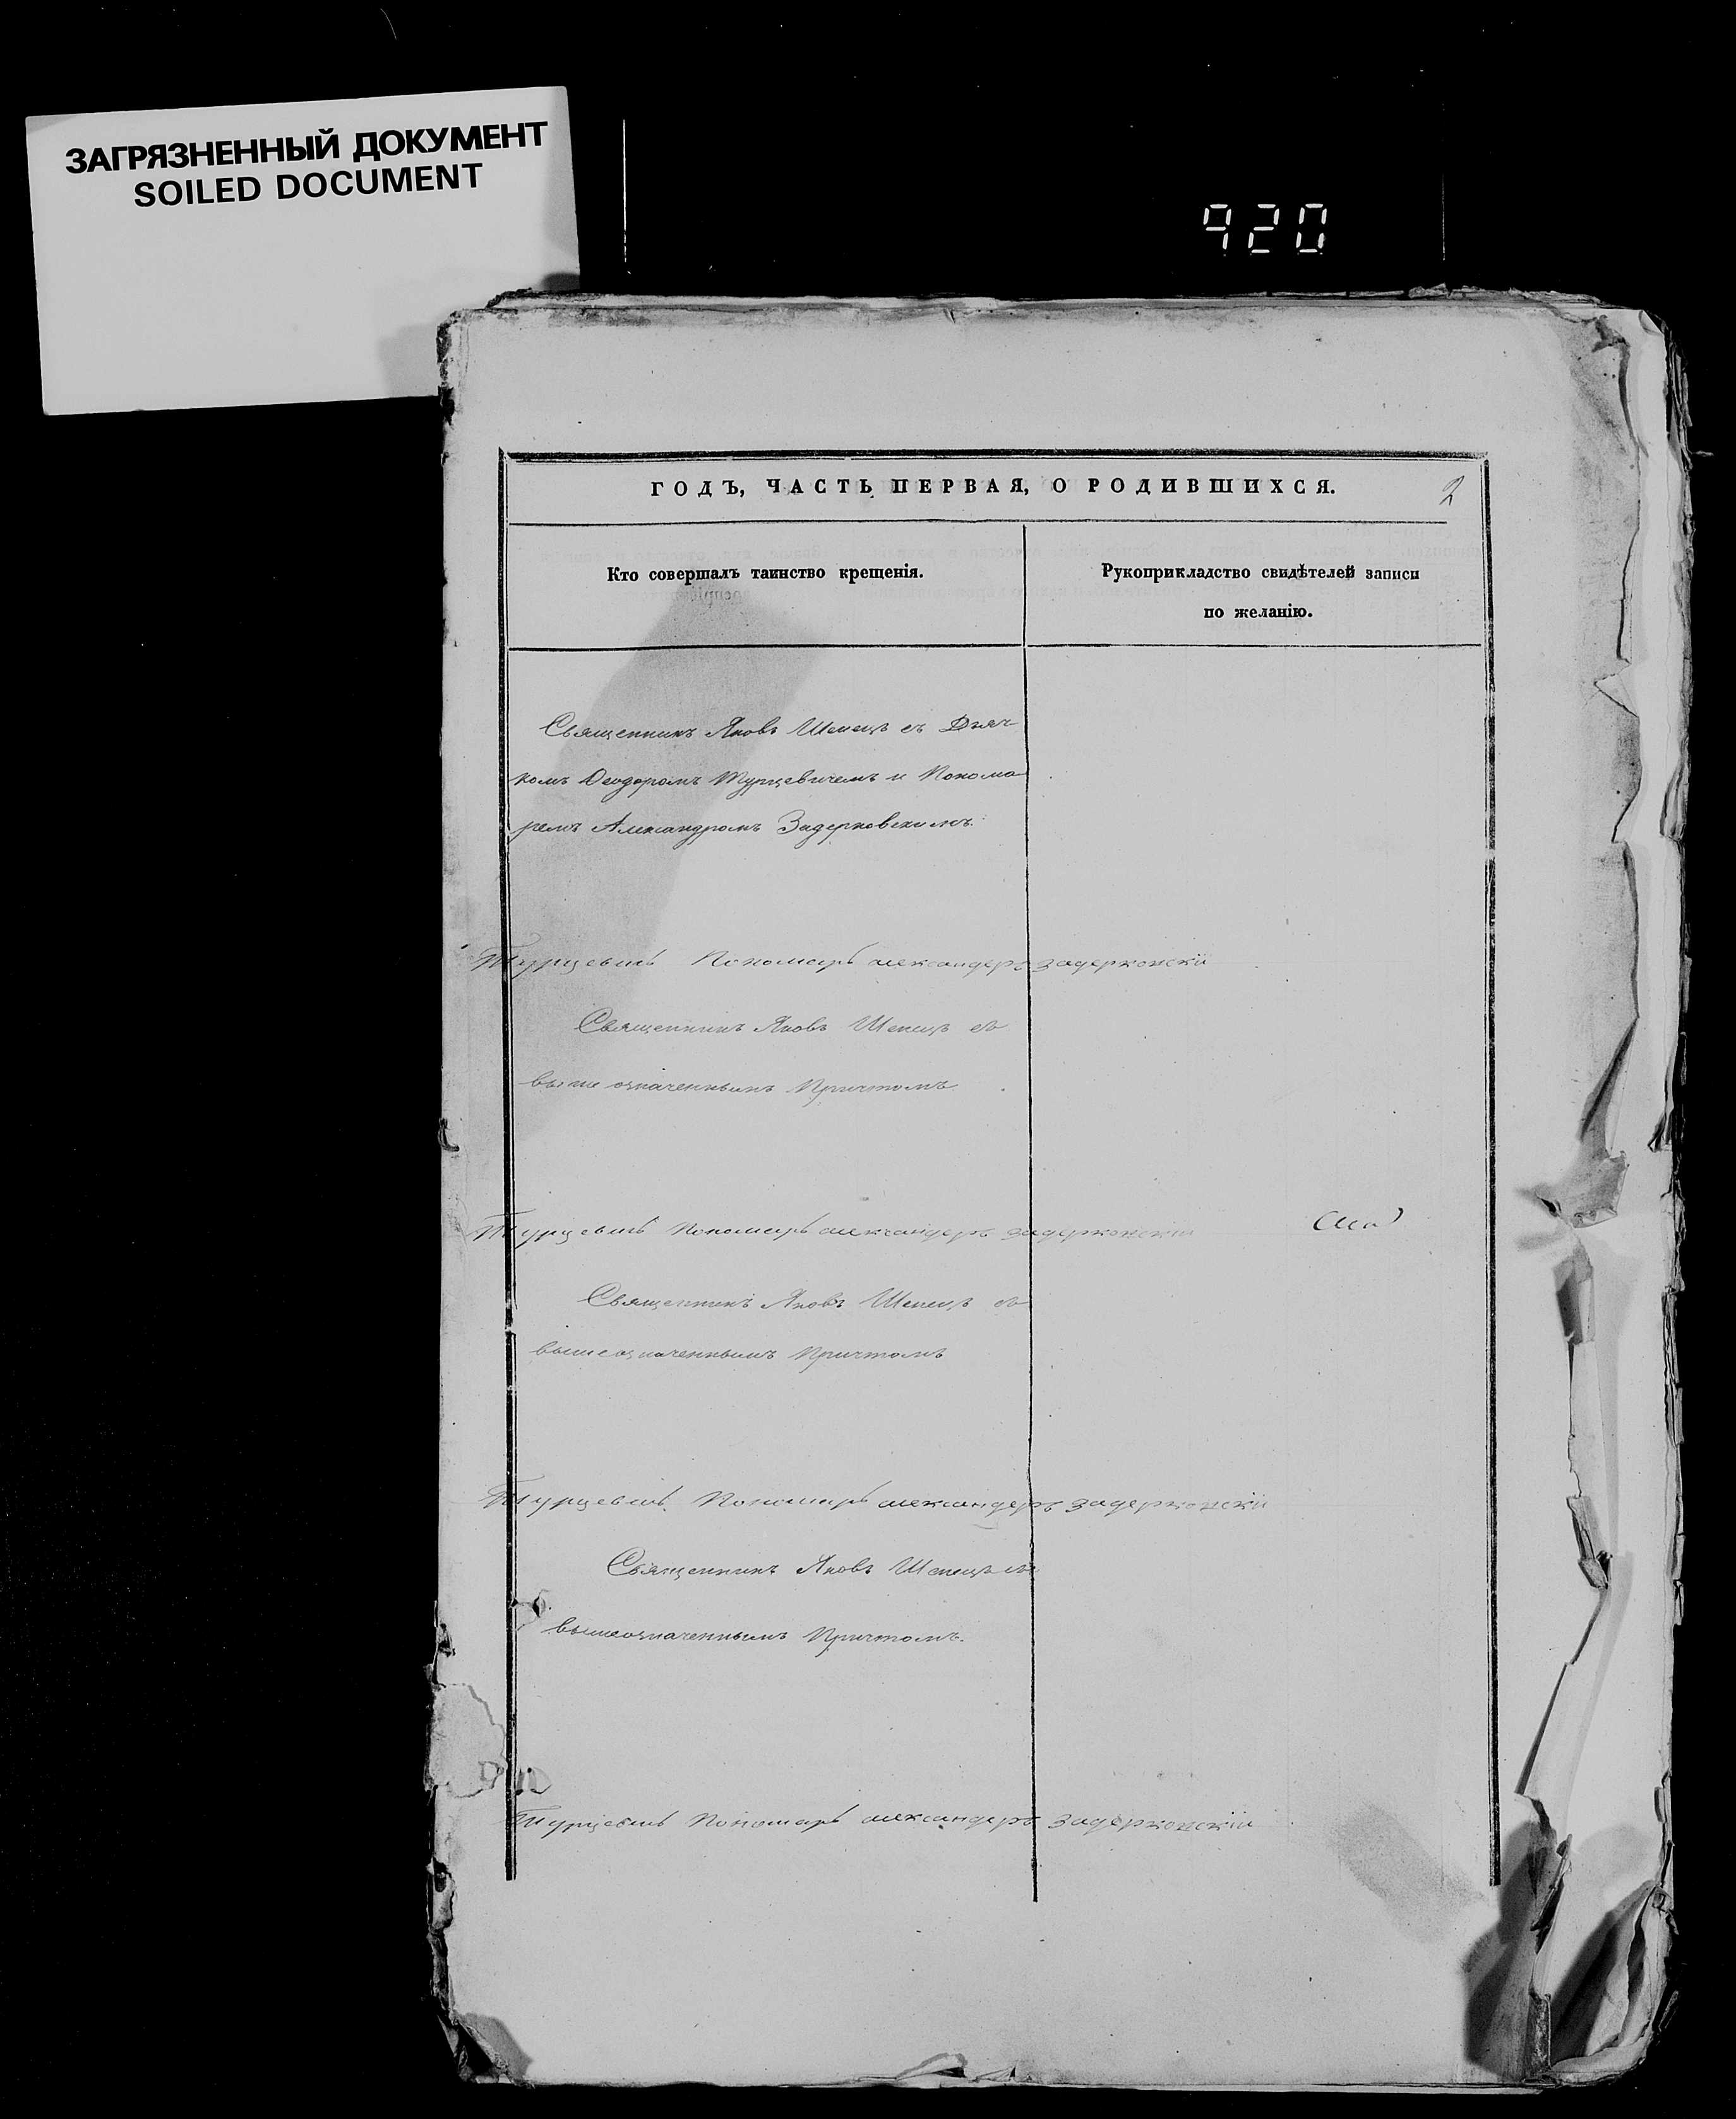 ЗАГРЯЗНЕННЫЙ ДОКУМЕНТ
SOILED DOCUMENT
920
ГОДЪ, ЧАСТЬ ПЕРВАЯ, О РОДИВШИХСЯ.
2
Кто совершалъ таинство крещенія.
Рукоприкладство свидѣтелей записи
по желанію.
Священникъ Яковъ Шепецъ съ Дьяч-
комъ Ѳеодоромъ Турцевичемъ и Понома
ремъ Александромъ Задерковскимъ.
Турцевичъ Пономаръ александеръ задерковскій
Священникъ Яковъ Шепецъ съ
выше означеннымъ Причтомъ
Турцевичъ Пономаръ александеръ задерковскій
Священникъ Яковъ Шепецъ съ
вышеозначеннымъ Причтомъ
Турцевичъ Пономаръ александеръ задерковскій
Священникъ Яковъ Шепецъ съ
вышеозначеннымъ Причтомъ.
Турцевичъ Пономаръ александеръ задерковскій